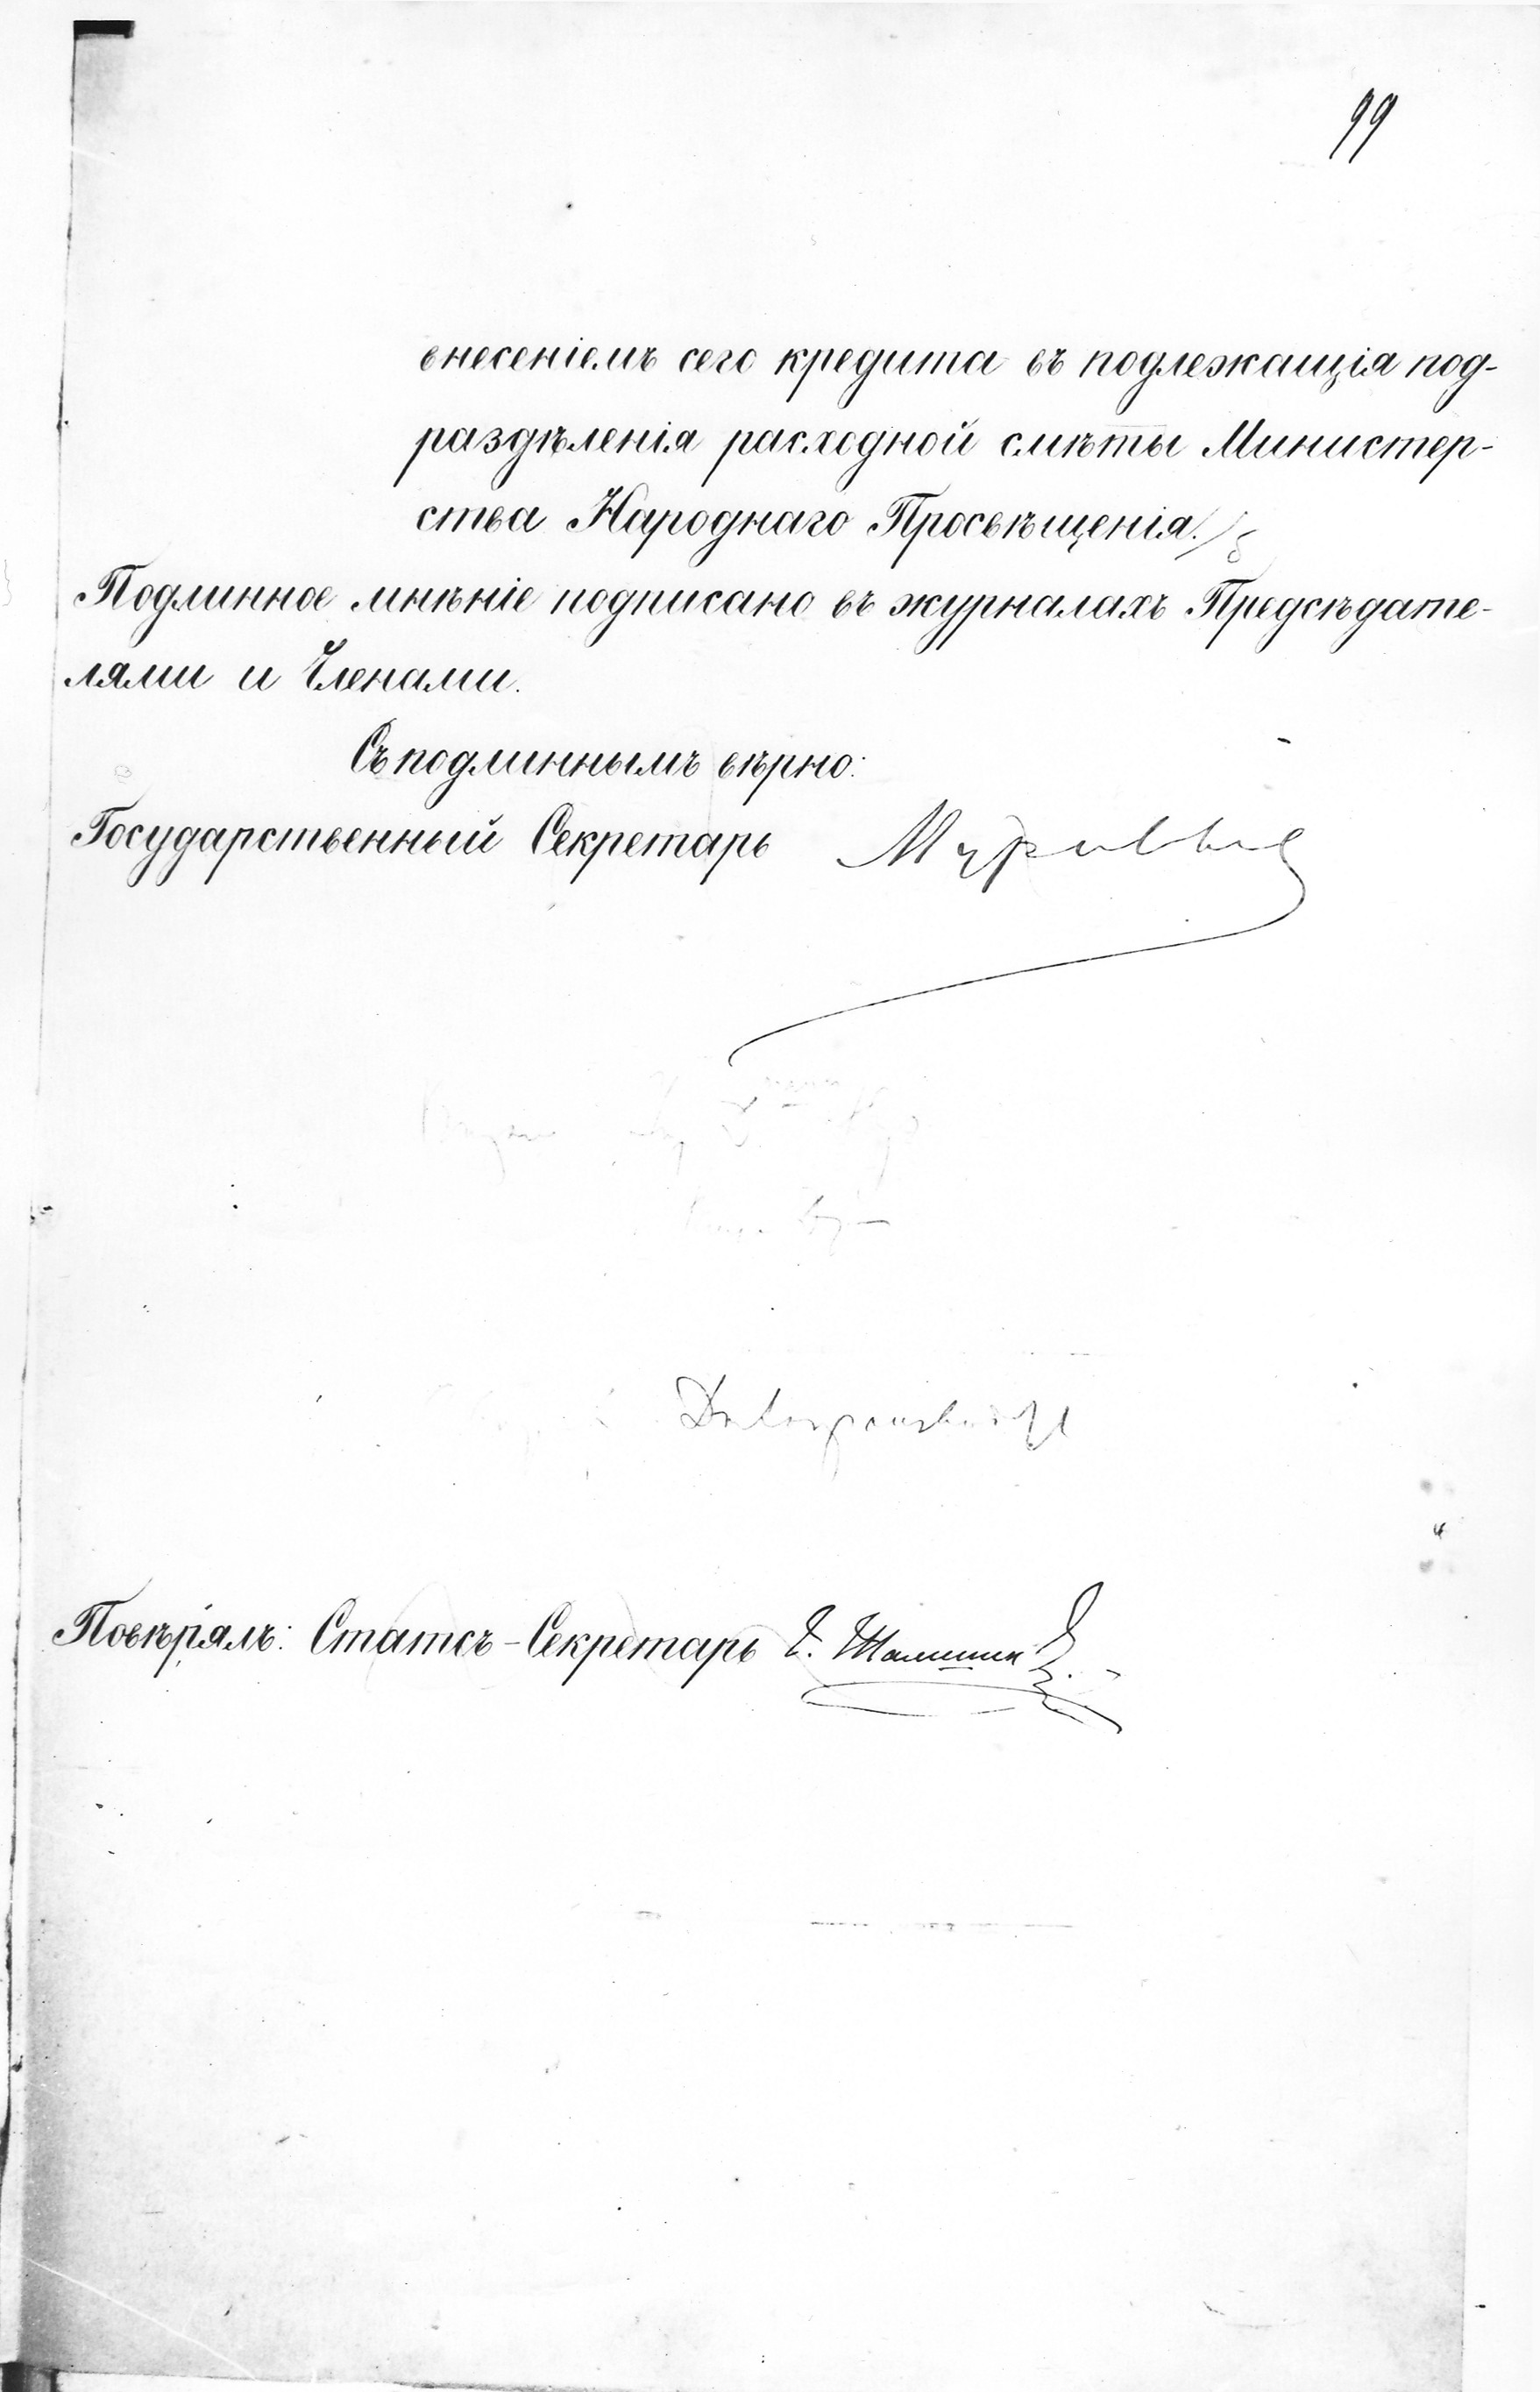 99
внесеніемъ сего кредита въ подлежащія под-
раздѣленія расходной смѣты Министер-
ства Народнаго Просвѣщенія.
Подлинное мнѣніе подписано въ журналахъ Предсѣдате-
лями и Членами.
Съ подлиннымъ вѣрно:
Государственный Секретарь
Повѣрялъ: Статсъ-Секретарь